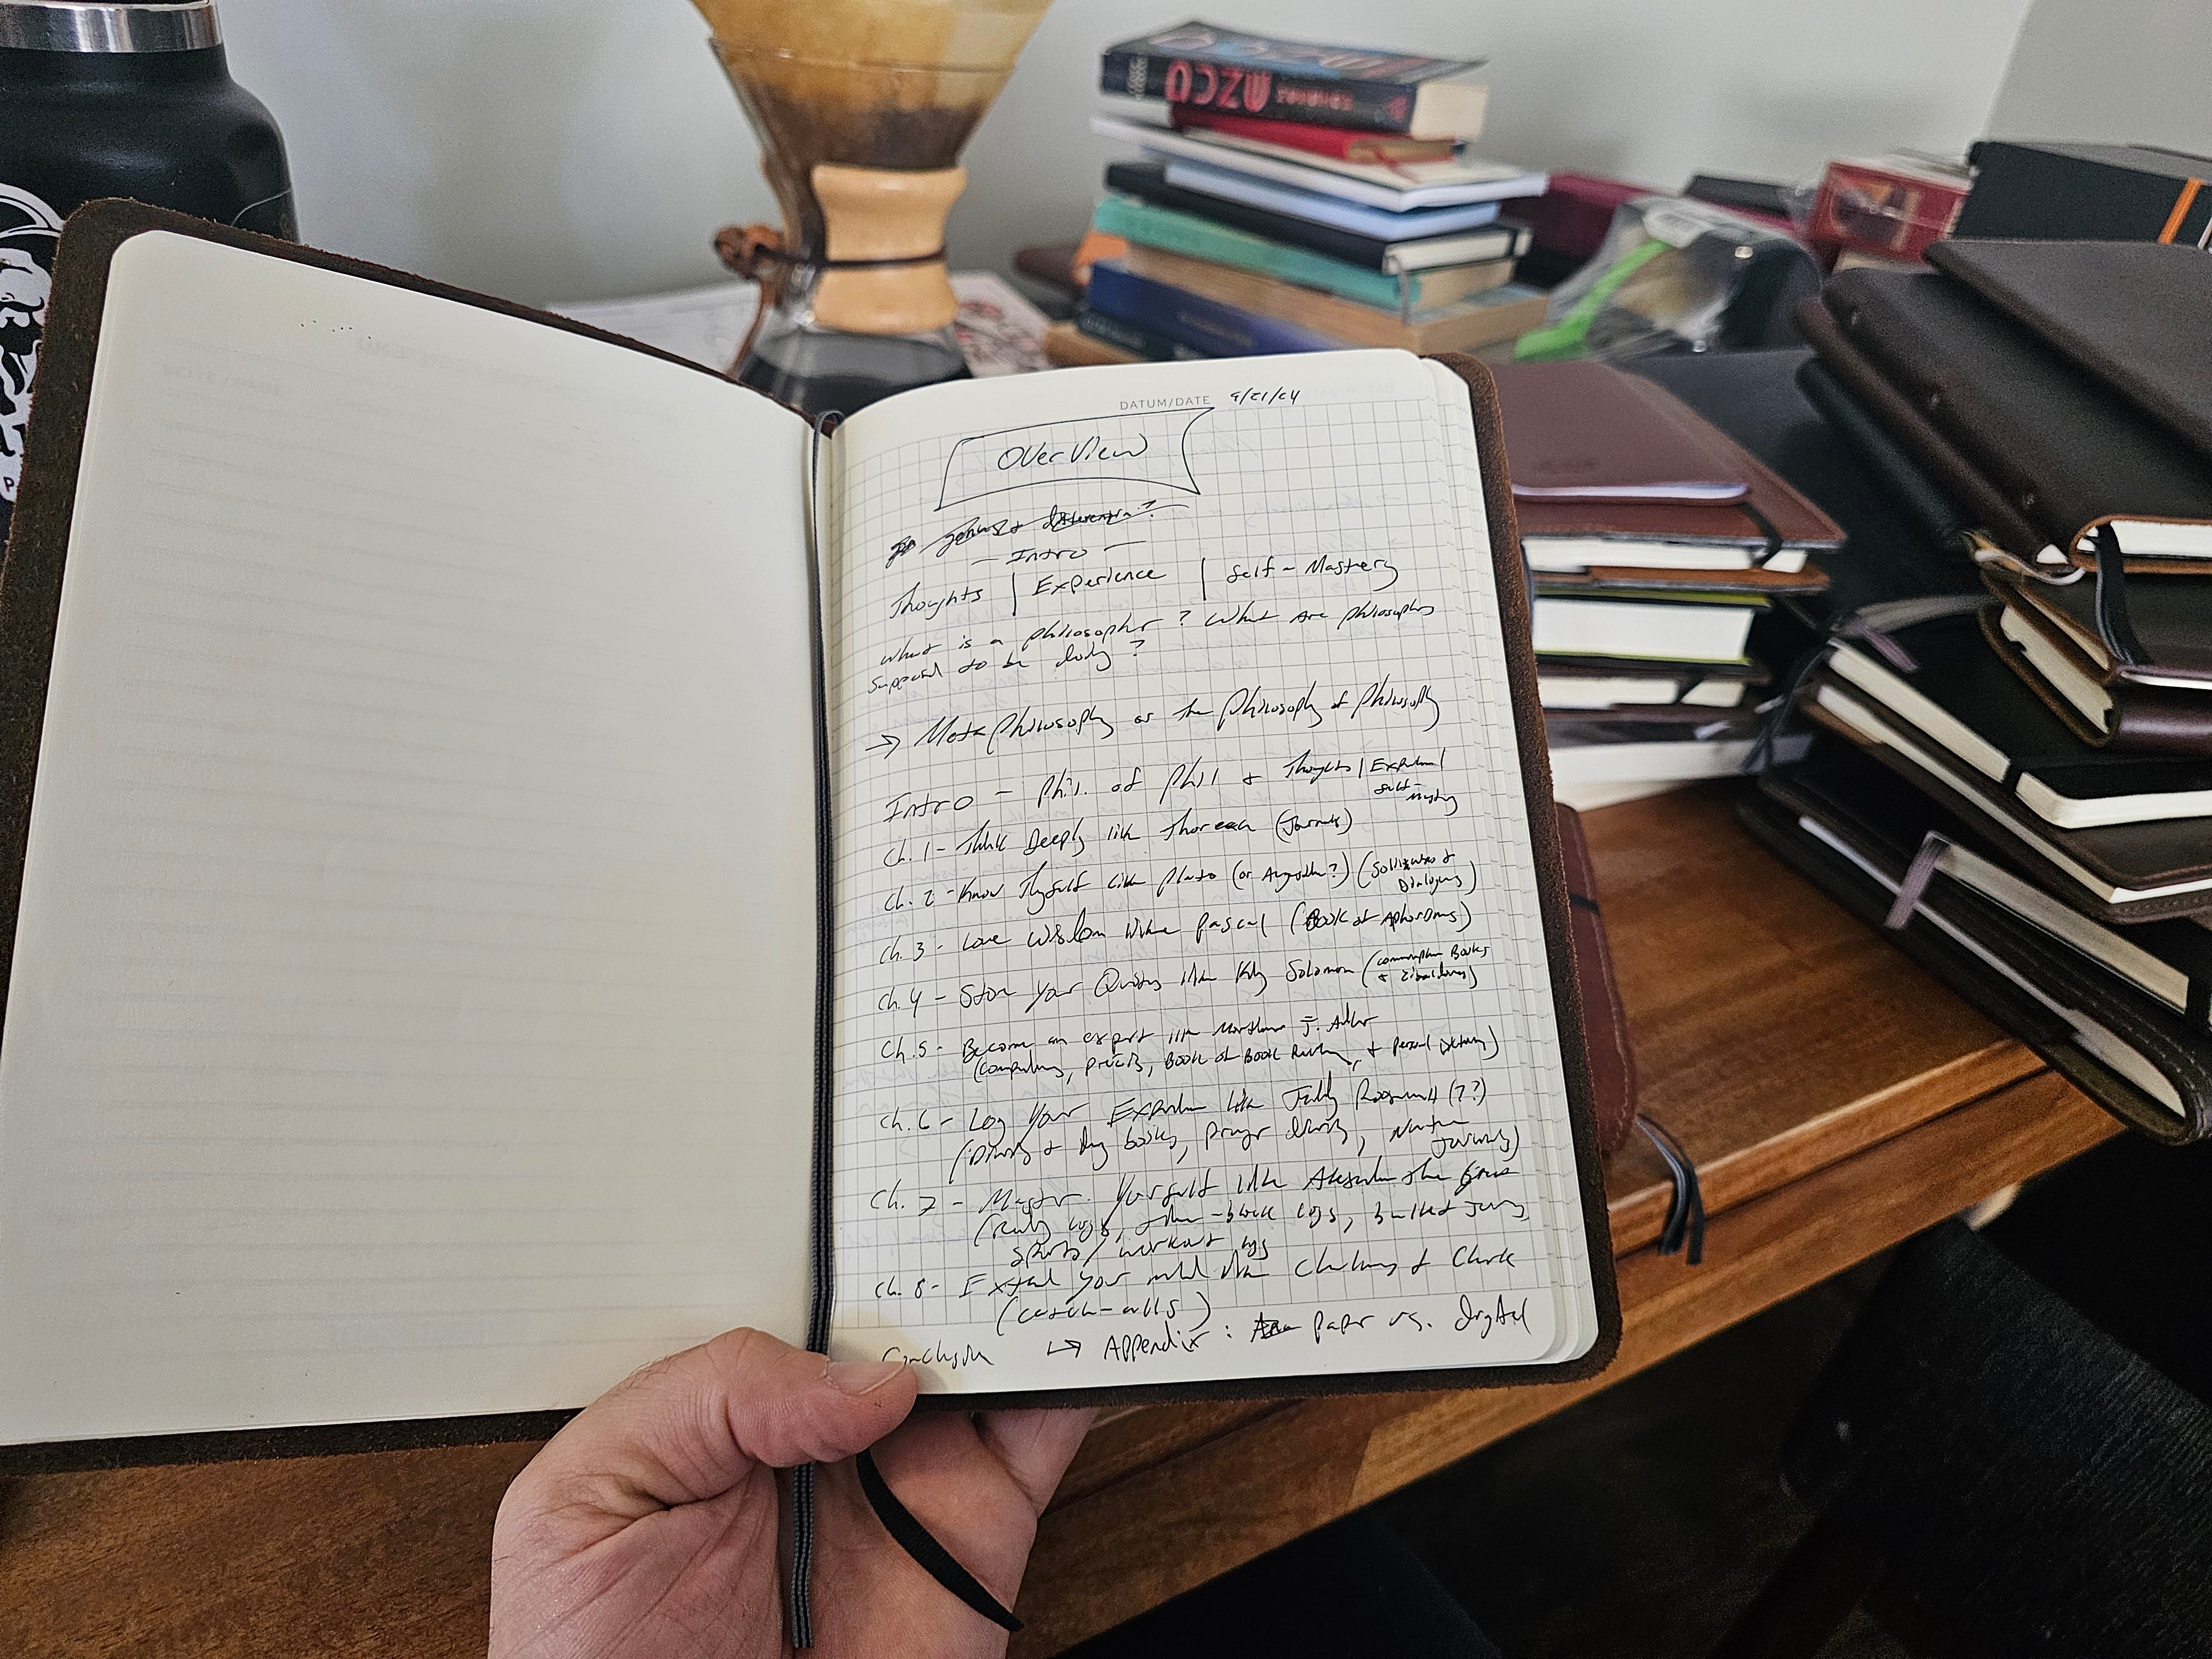 DATUM/DATE 9/21/24
OverView
— Intro —
Thoughts | Experience | Self-Mastery
What is a philosopher? What are philosophers
supposed to be doing?
→ Metaphilosophy or the philosophy of philosophy
Intro - Phil. of Phil & Thoughts | Experience |
self-
mastery
Ch. 1 - Think Deeply like Thoreau (Journals)
Ch. 2 - Know Thyself like Plato (or Augustine?) (Soliloquies &
Dialogues)
Ch. 3 - Love Wisdom like Pascal (Book of Aphorisms)
Ch. 4 - Store Your Quotes like King Solomon (commonplace Books
& Zibaldones)
Ch. 5 - Become an expert like Mortimer J. Adler
(compendiums, précis, Book of Book Reviews, & Personal Dictionary)
Ch. 6 - Log Your Experience like Teddy Roosevelt (??)
(Diaries & day books, prayer diaries, Nature
Journals)
Ch. 7 - Master Yourself like Alexander the Great
(Reading logs, time-block logs, bullet journals
sports/workout logs
Ch. 8 - Extend your mind like Chalmers & Clark
(catch-alls)
Conclusion → Appendix: paper vs. Digital